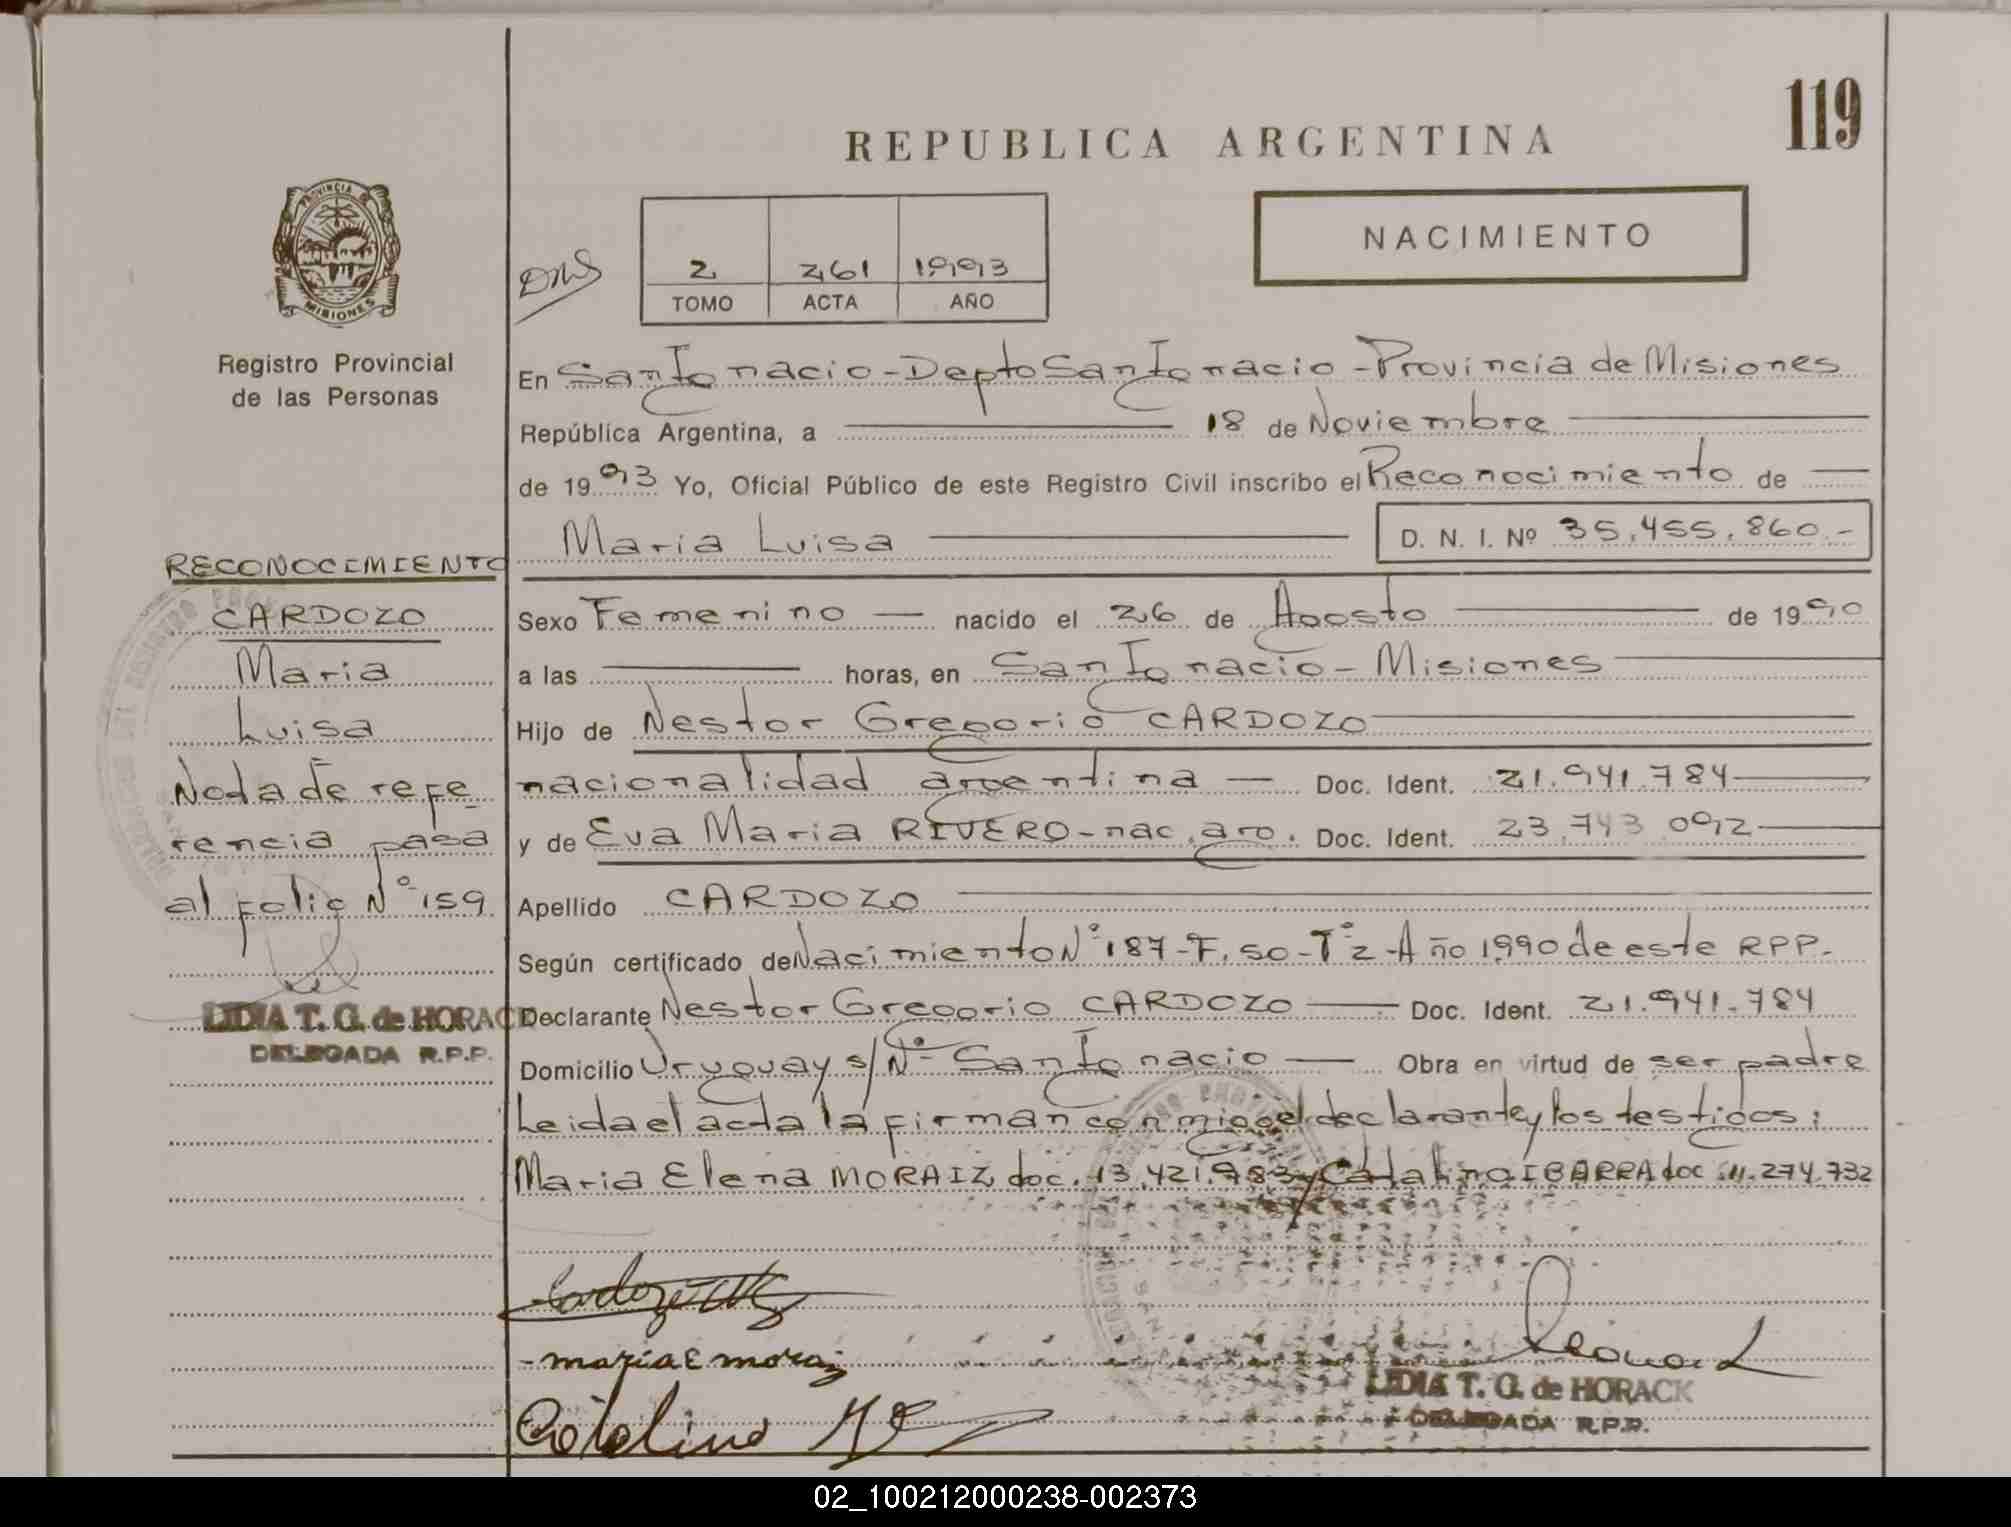 119
REPUBLICA ARGENTINA
NACIMIENTO
PROVINCIA DE
MISIONES
Registro Provincial
de las Personas
2 261 1993
TOMO ACTA AÑO
En San Ignacio - Depto San Ignacio - Provincia de Misiones
República Argentina, a 18 de Noviembre
de 1993 Yo, Oficial Público de este Registro Civil inscribo el Reconocimiento de
Maria Luisa D. N. I. Nº 35.455.860.-
RECONOCIMIENTO
CARDOZO
Maria
Luisa
Nota de refe
rencia pasa
al folio Nº 159
LIDIA T. G. de HORACK
DELEGADA R.P.P.
Sexo Femenino nacido el 26 de Agosto de 1990
a las horas, en San Ignacio - Misiones
Hijo de Nestor Gregorio CARDOZO
nacionalidad argentina Doc. Ident. 21.941.784
y de Eva Maria RIVERO - nac. arg. Doc. Ident. 23.743.092
Apellido CARDOZO
Según certificado de Nacimiento Nº 187 - F. 50 - Tº 2 - Año 1990 de este RPP.
Declarante Nestor Gregorio CARDOZO Doc. Ident. 21.941.784
Domicilio Uruguay s/Nº San Ignacio Obra en virtud de ser padre
Leida el acta la firman conmigo el declarante y los testigos:
Maria Elena MORAIZ doc. 13.421.783 y Catalino IBARRA doc. 11.274.732
Cardozo
- maria E moraiz
Catalino
LIDIA T. G. de HORACK
DELEGADA R.P.P.
02_100212000238-002373